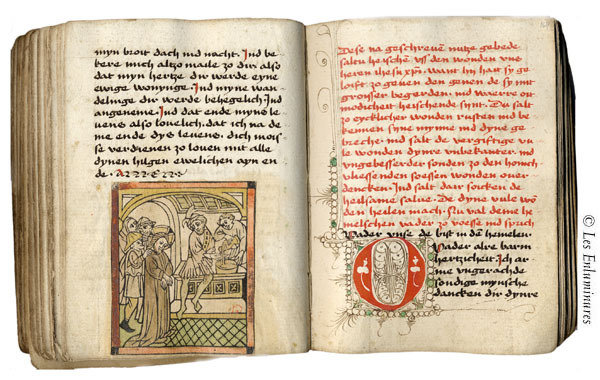 myn broit dach ind nacht. Ind be
kere mich altzo maile zo dir also
dat myn hertze dir werde eyne
ewige wonynge. Ind myne wan
delinge dir werde behegelich Ind
angeneme. Ind dat ende myns le
uens also louelich, dat ich na de
me ende dys leuens, dich moiſ
se verdienen zo louen mit alle
dynen hilgen ewelichen ayn en
de. A
Dese na geschreuen nutze gebede
saltu heischen vss den wonden vns
heren ihesu xpi. want hy hait sy ge
loift zo geuen den genen de sy mit
groisser begerden ind waerre ou
modicheit heischende synt. Du salt
zo eycklicher wonden rusten ind be
kennen syne mynne ind dyne ge
breche ind salt de vergiftige vu
le wonden dynre vnbekanter. ind
vngebesserder sonden zo den honich
vliessenden soessen wonden ouer
dencken. Ind salt dair soicken de
heilsame salue. De dyne vule wō
den heilen mach. Nu val deme he
melschen vader zo voesse ind sprich
Vader vnse de bist in dē hemelen.
O Vader alre barm
hertzicheit. Ich ar
me vngerachde
sondige mynsche
dancken dir dynre
© Les Enluminures